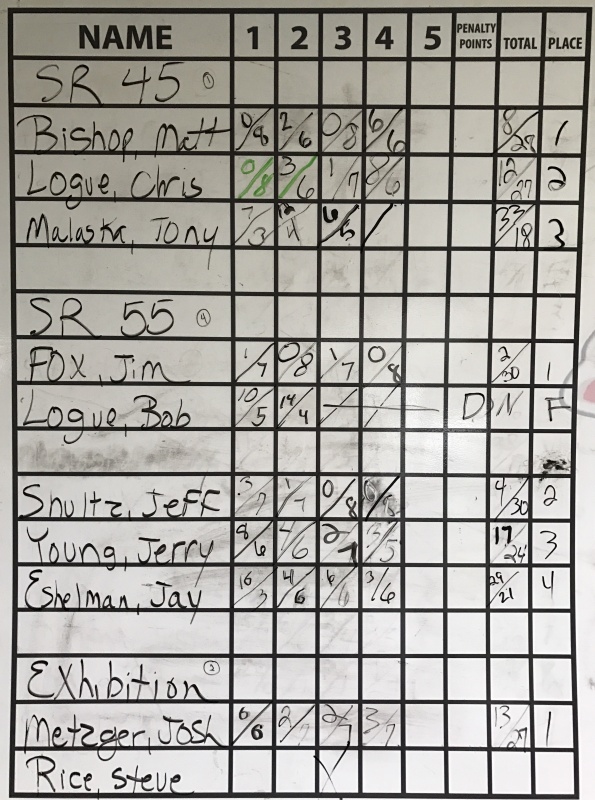 NAME 1 2 3 4 5 PENALTY POINTS TOTAL PLACE
SR 45 1
Bishop, Matt 0/8 2/6 0/8 6/6 8/28 1
Logue, Chris 0/8 3/6 1/7 8/6 12/27 2
Malaska, Tony 7/3 12/4 6/5 / 33/18 3
SR 55 4
FOX, Jim 1/7 0/8 1/7 0/8 2/30 1
Logue, Bob 10/5 14/4 DNF
Shultz, Jeff 3/7 1/7 0/8 4/30 2
Young, Jerry 8/6 4/6 2/7 3/5 17/24 3
Eshelman, Jay 16/3 4/6 6/6 3/6 29/21 4
Exhibition 2
Metzger, Josh 6/6 2/7 2/7 3/7 13/27 1
Rice, Steve